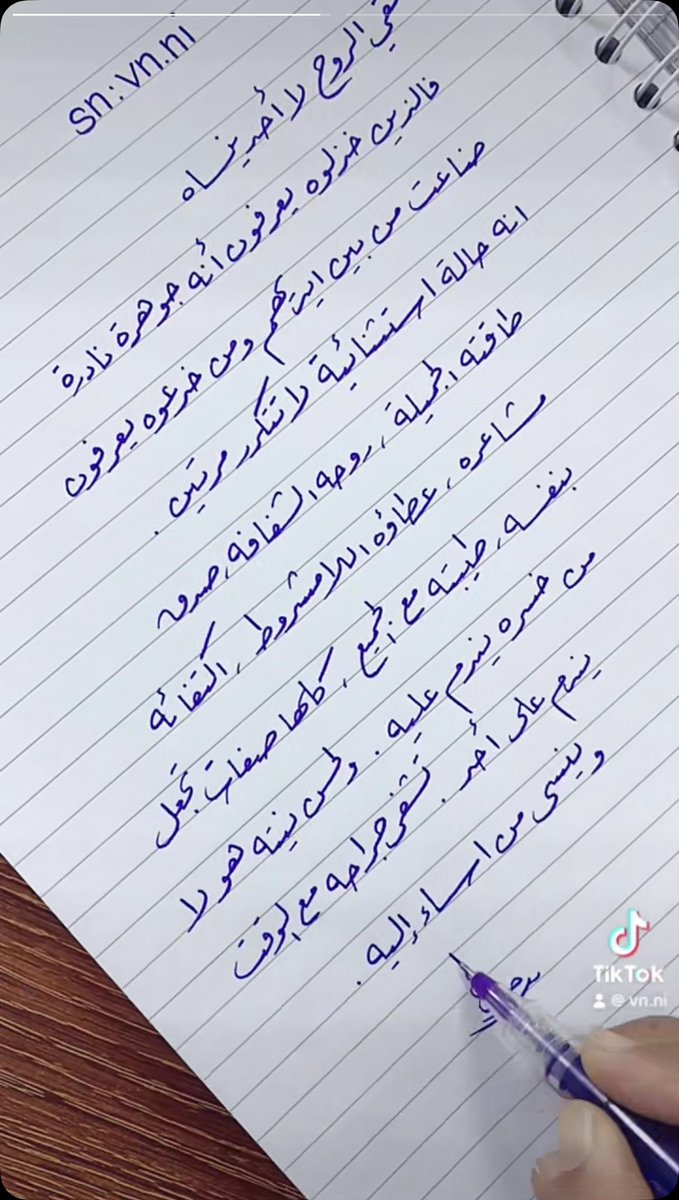 sn: vn.ni
نقي الروح لا أحد ينساه
فالذين خذلوه يعرفون أنه جوهرة نادرة
ضاعت من بين ايديهم ومن خدعوه يعرفون
انه حالة استثنائية لا تتكرر مرتين .
طاقته الجميلة ، روحه الشفافة ، صدق
مشاعره ، عطاؤه اللا مشروط ، اكتفائه
بنفسه ، طيبته مع الجميع ، كلها صفات تجعل
من خسره يندم عليه . ولحسن نيته هو لا
يندم على أحد . تشفى جراحه مع الوقت
وينسى من اساء إليه .
TikTok
@vn.ni